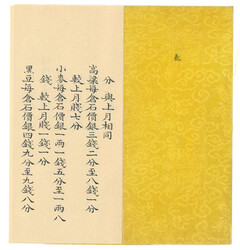 分 與上月相同
高粱每倉石價銀三錢二分至八錢一分
較上月賤七分
小麥每倉石價銀一兩一錢五分至一兩八
錢 較上月賤一錢一分
黑豆每倉石價銀四錢九分至九錢八分